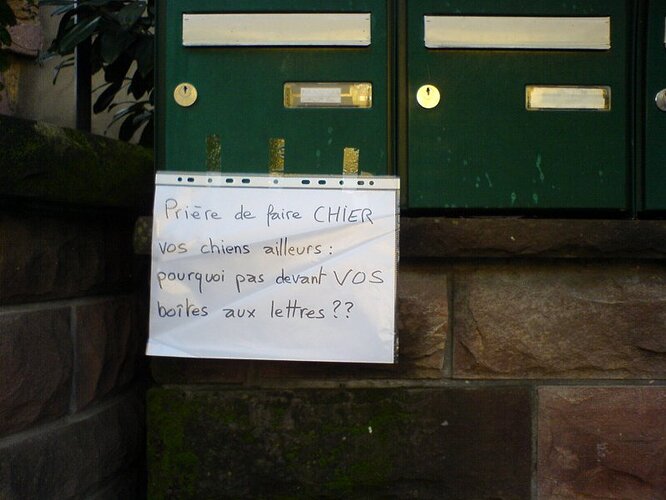 Prière de faire CHIER
vos chiens ailleurs :
pourquoi pas devant VOS
boîtes aux lettres ??